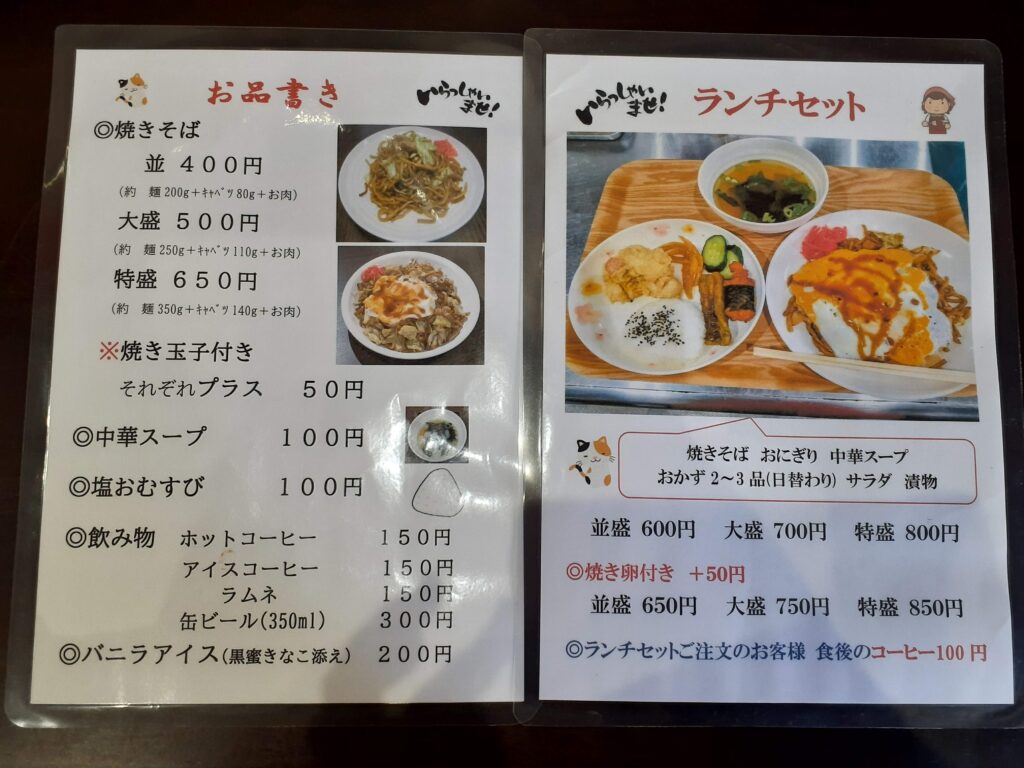 お品書き
いらっしゃいませ!
◎焼きそば
並 400円
(約 麺200g+ｷｬﾍﾞﾂ80g+お肉)
大盛 500円
(約 麺250g+ｷｬﾍﾞﾂ110g+お肉)
特盛 650円
(約 麺350g+ｷｬﾍﾞﾂ140g+お肉)
※焼き玉子付き
それぞれプラス 50円
◎中華スープ 100円
◎塩おむすび 100円
◎飲み物 ホットコーヒー 150円
アイスコーヒー 150円
ラムネ 150円
缶ビール(350ml) 300円
◎バニラアイス(黒蜜きなこ添え) 200円
いらっしゃいませ!
ランチセット
焼きそば おにぎり 中華スープ
おかず2～3品(日替わり) サラダ 漬物
並盛 600円 大盛 700円 特盛 800円
◎焼き卵付き +50円
並盛 650円 大盛 750円 特盛 850円
◎ランチセットご注文のお客様 食後のコーヒー100円